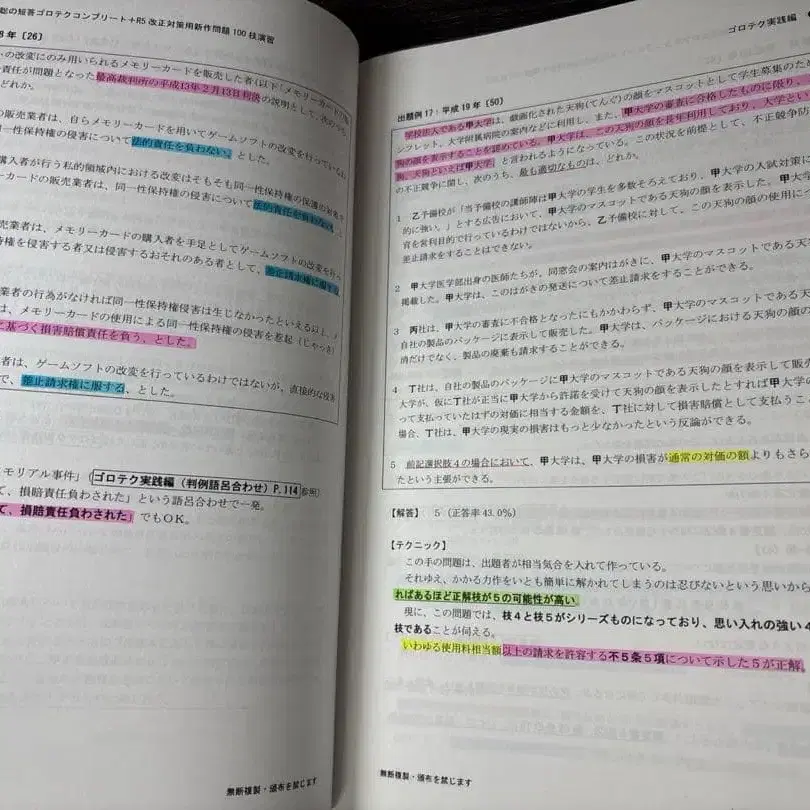 総の短答ゴロテクコンプリート+R5 改正対策用新作問題 100 枝演習
8年〔26〕
トの改変にのみ用いられるメモリーカードを販売した者(以下「メモリーカードの販
責任が問題となった最高裁判所の平成13年2月13日判決の説明として、次のうち、
どれか。
の販売業者は、自らメモリーカードを用いてゲームソフトの改変を行っているわ
同一性保持権の侵害について法的責任を負わない、とした。
購入者が行う私的領域内における改変はそもそも同一性保持権の保護の対象
ーカードの販売業者は、同一性保持権の侵害について法的責任を負わない、
売業者は、メモリーカードの購入者を手足としてゲームソフトの改変を行っ
持権を侵害する者又は侵害するおそれのある者として、差止請求権に服する
業者の行為がなければ同一性保持権侵害は生じなかったといえる以上、メ
は、メモリーカードの使用による同一性保持権の侵害を惹起(じゃっき)
に基づく損害賠償責任を負う、とした。
者は、ゲームソフトの改変を行っているわけではないが、直接的な侵害
で、差止請求権に服する、とした。
モリアル事件」(ゴロテク実践編(判例語呂合わせ)P.114参照)
て、損賠責任負わされた」という語呂合わせで一発。
て、損賠責任負わされた」でもOK。
無断複製・頒布を禁じます
ゴロテク実践編
出題例 17:平成 19 年〔50〕
学校法人である甲大学は、戯画化された天狗(てんぐ)の顔をマスコットとして学生募集のため
ンフレット、大学附属病院の案内などに利用し、また、甲大学の審査に合格したものに限り、
狗の顔を表示することを認めている。甲大学は、この天狗の顔を長年利用しており、大学とい
狗、天狗といえば甲大学、と言われるようになっている。この状況を前提として、不正競争防
の不正競争に関し、次のうち、最も適切なものは、どれか。
1 乙予備校が「当予備校の講師陣は甲大学の学生を多数そろえており、甲大学の入試対策に
的に強い。」とする広告において、甲大学のマスコットである天狗の顔を表示した。甲大学
育を営利目的で行っているわけではないから、乙予備校に対して、この天狗の顔の使用につ
差止請求をすることはできない。
2 甲大学医学部出身の医師たちが、同窓会の案内はがきに、甲大学のマスコットである天
掲載した。甲大学は、このはがきの発送について差止請求をすることができる。
3 丙社は、甲大学の審査に不合格となったにもかかわらず、甲大学のマスコットである天
自社の製品のパッケージに表示して販売した。甲大学は、パッケージにおける天狗の顔の
消だけでなく、製品の廃棄も請求することができる。
4 丁社は、自社の製品のパッケージに甲大学のマスコットである天狗の顔を表示して販売
大学が、仮に丁社が正当に甲大学から許諾を受けて天狗の顔を表示したとすれば甲大学の
って支払っていたはずの対価に相当する金額を、丁社に対して損害賠償として支払うこ
場合、丁社は、甲大学の現実の損害はもっと少なかったという反論ができる。
5 前記選択肢4の場合において、甲大学は、甲大学の損害が通常の対価の額よりもさら
たという主張ができる。
【解答】 5(正答率 43.0%)
【テクニック】
この手の問題は、出題者が相当気合を入れて作っている。
それゆえ、かかる力作をいとも簡単に解かれてしまうのは忍びないという思いから
ればあるほど正解枝が5の可能性が高い。
現に、この問題では、枝4と枝5がシリーズものになっており、思い入れの強い4
枝であることが伺える。
いわゆる使用料相当額以上の請求を許容する不5条5項について示した5が正解。
無断複製・頒布を禁じます